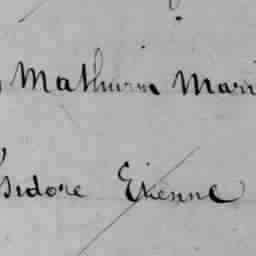 Mathurin Mari
Isidore Etienne